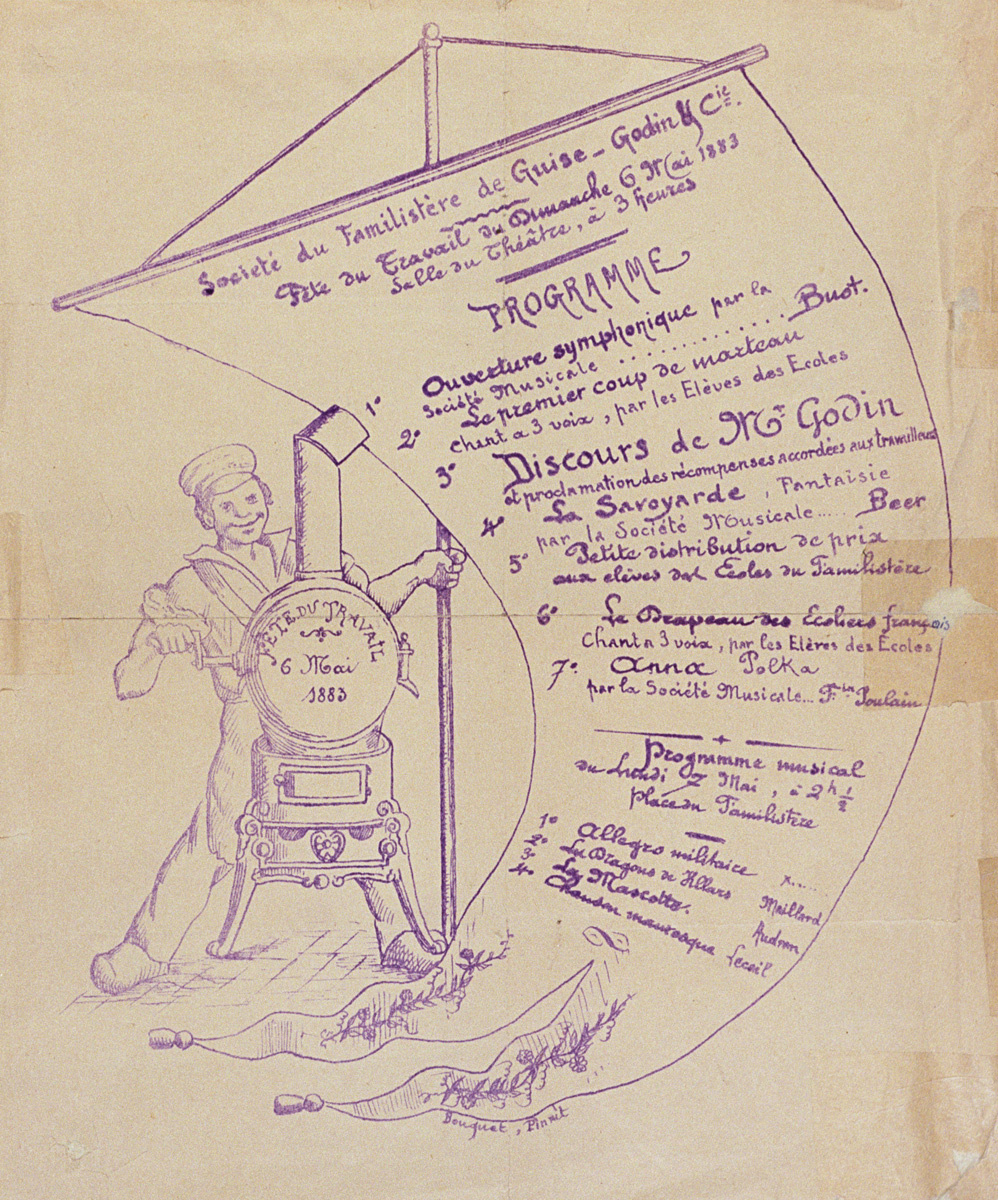 Societé du Familistère de Guise - Godin & Cie.
Fête du Travail du Dimanche 6 Mai 1883
Salle du Théâtre, à 3 heures
PROGRAMME
1° Ouverture symphonique par la
Société Musicale ............. Buot.
2° Le premier coup de marteau
Chant a 3 voix, par les Elèves des Ecoles
3° Discours de Mr Godin
et proclamation des récompenses accordées aux travailleurs
4° La Savoyarde, Fantaisie
par la Société Musicale..... Beer
5° Petite distribution de prix
aux elèves des Ecoles du Familistère
6° Le Drapeau des Ecoliers français
Chant a 3 voix, par les Elèves des Ecoles
7° Anna Polka
par la Société Musicale... Poulain
Programme musical
du Lundi 7 Mai, à 2h ½
Place du Familistère
1° Allegro militaire x.....
2° Les Dragons de Villars Maillard
3° La Mascotte. Audran
4° Chanson mauresque Leceil
FÊTE DU TRAVAIL
6 Mai
1883
Bouquet, Pinxit